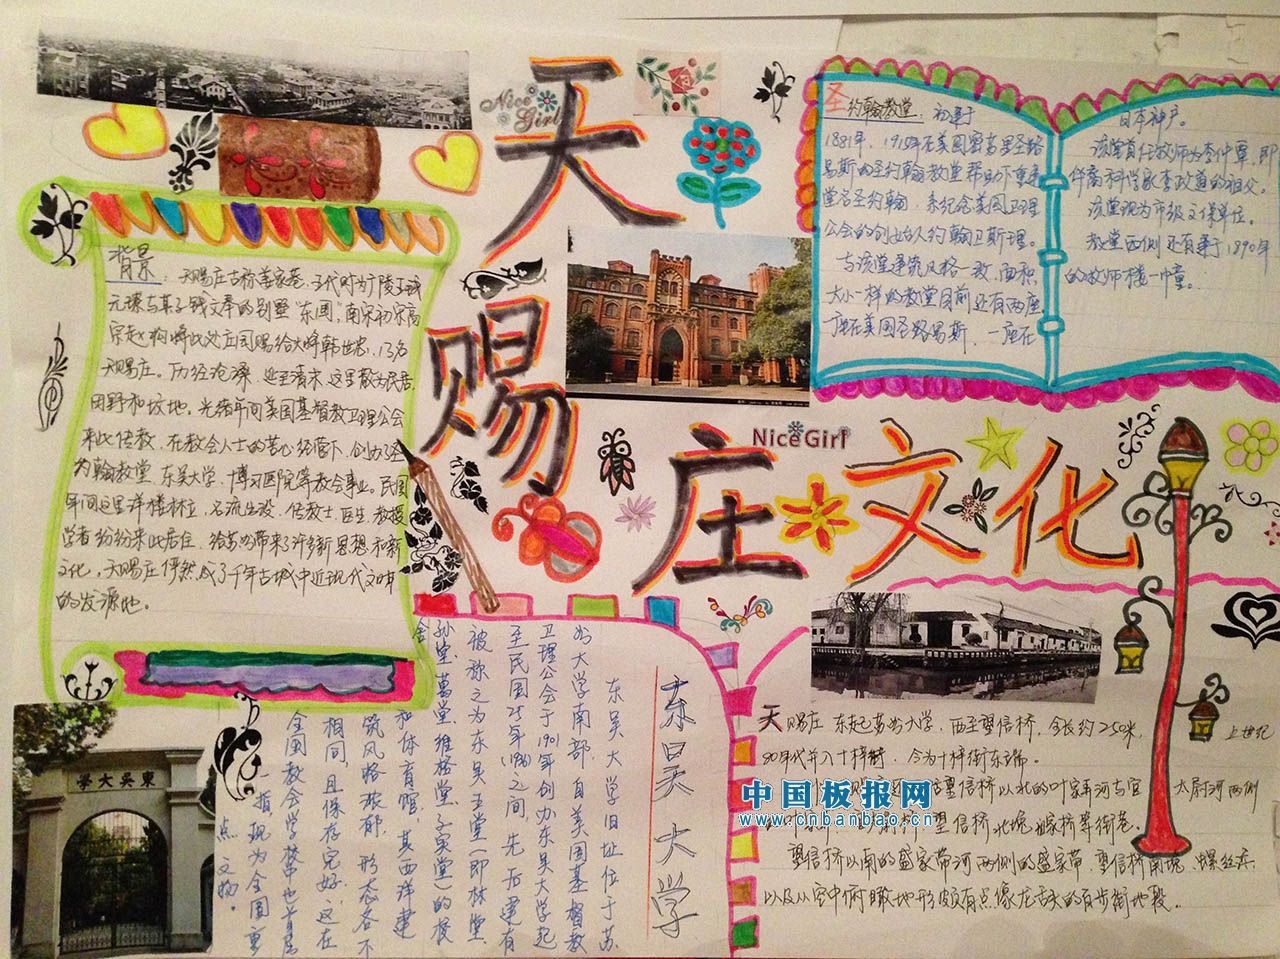 天赐庄文化
Nice
Girl
Nice Girl
背景：天赐庄古称姜家巷，五代时为广陵王钱
元璙与其子钱文奉的别墅“东圃”，南宋初宋高
宗赵构将此处庄园赐给大将韩世忠，乃名
天赐庄。历经沧桑，延至清末，这里散为民居、
田野和坟地。光绪年间美国基督教卫理公会
来此传教，在教会人士的苦心经营下，创办了圣
约翰教堂、东吴大学、博习医院等教会事业。民国
年间这里洋楼林立，名流出没，传教士、医生、教授、
学者纷纷来此居住，给苏州带来了许多新思想和新
文化，天赐庄俨然成了千年古城中近现代文明
的发源地。
圣约翰教堂：初建于
1881年，1915年在美国密苏里圣路
易斯的圣约翰教堂帮助下重建
堂名圣约翰，系纪念英国卫理
公会的创始人约翰卫斯理。
与该堂建筑风格一致、面积
大小一样的教堂目前还有两座
一座在美国圣路易斯，一座在
日本神户。
该堂首任牧师为李仲覃，即
华裔科学家李政道的祖父。
该堂现为市级文保单位。
教堂西侧还有建于1890年
的牧师楼一幢。
東吴大學
东吴大学
东吴大学旧址位于苏
州大学南部，自美国基督教
卫理公会于1901年创办东吴大学起
至民国25年(1936)之间，先后建有
被称之为东吴五堂(即林堂、
孙堂、葛堂、维格堂、子实堂)的校舍
和体育馆，其西洋建
筑风格浓郁，形态各不
相同，且保存完好，这在
全国教会学校中也首屈
一指，现为全国重
点文物。
天赐庄东起苏州大学，西至望信桥，全长约250米，
上世纪
80年代并入十梓街，今为十梓街东端。
望信桥以北的叶家弄河古官
太尉河两侧
望信桥北堍
桥等街巷。
望信桥以南的盛家带河两侧的盛家带、望信桥南堍、螺丝浜
以及从空中俯瞰地形颇有点像龙舌头的百步街地段。
中国板报网
www.cnbanbao.cn